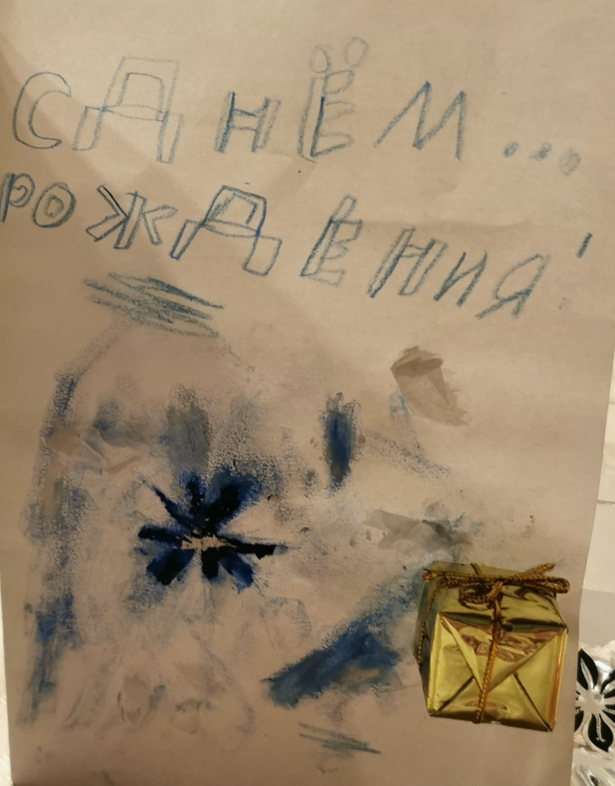 С ДНЁМ...
РОЖДЕНИЯ!